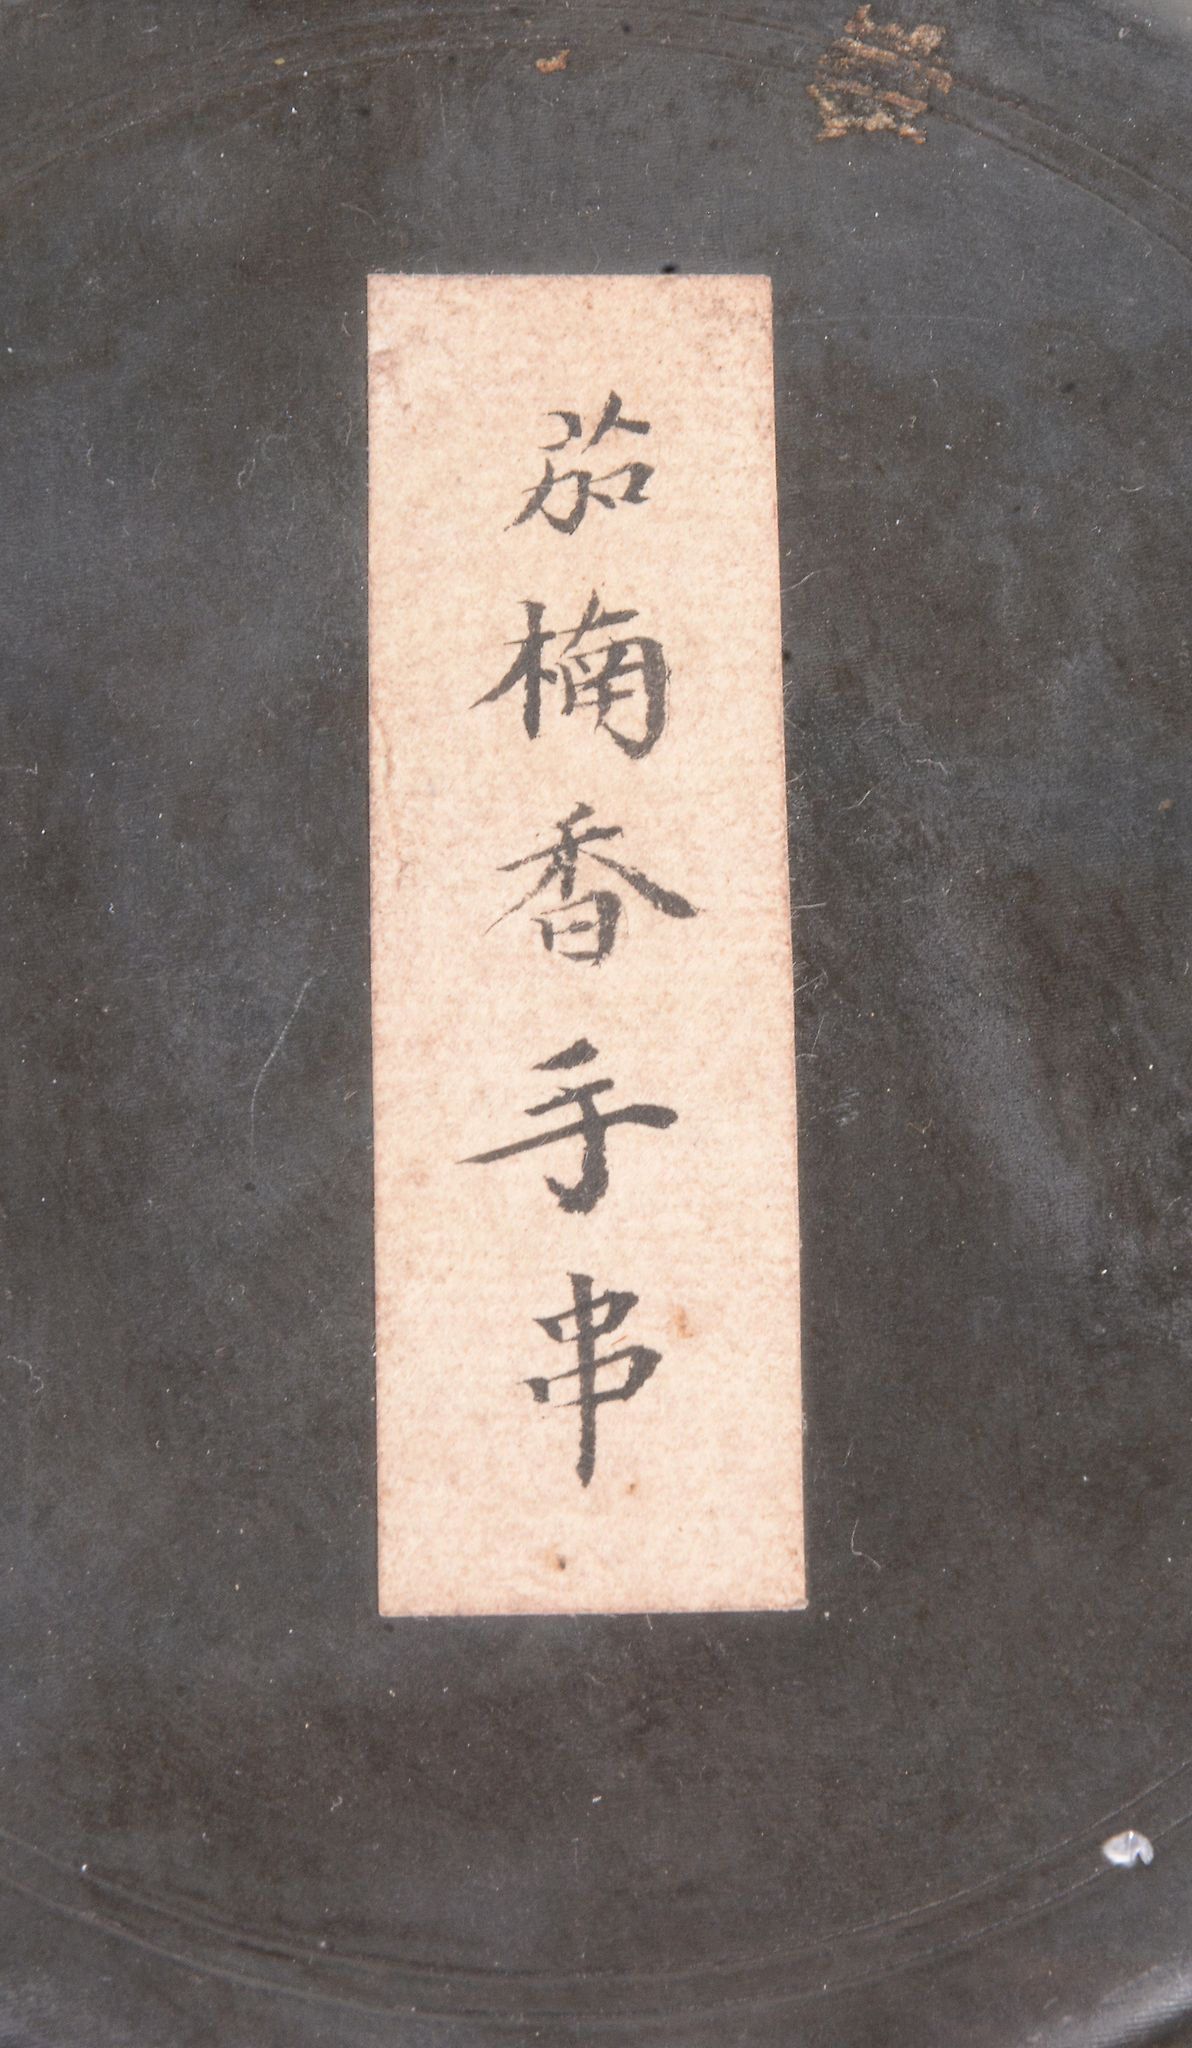 茄楠香手串